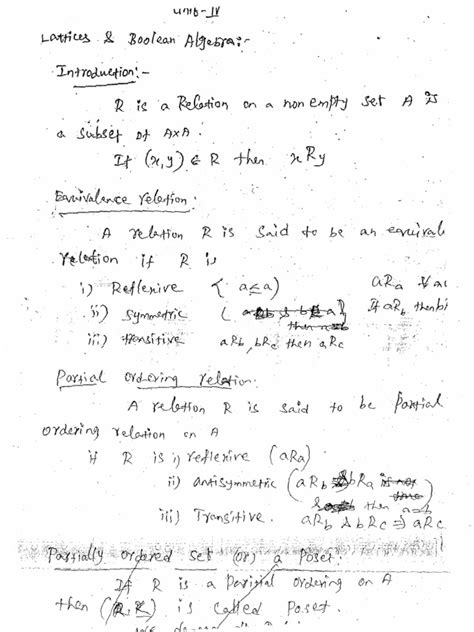 Unit-IV
Lattices & Boolean Algebra:-
Introduction:-
R is a Relation on a non empty set A is
a subset of AxA.
If (x,y) ∈ R then xRy
Equivalence relation:
A relation R is said to be an equival
relation if R is
i) Reflexive ( a≤a) aRa ∀ a∈
ii) Symmetric ( If aRb then b
iii) transitive aRb, bRc then aRc
Partial ordering relation:
A relation R is said to be partial
ordering relation on A
if R is i) reflexive (aRa)
ii) antisymmetric (aRb & bRa then a=b
iii) Transitive. aRb & bRc ⇒ aRc
Partially ordered set (or) a Poset:
If R is a Partial ordering on A
then ( R) is called Poset.